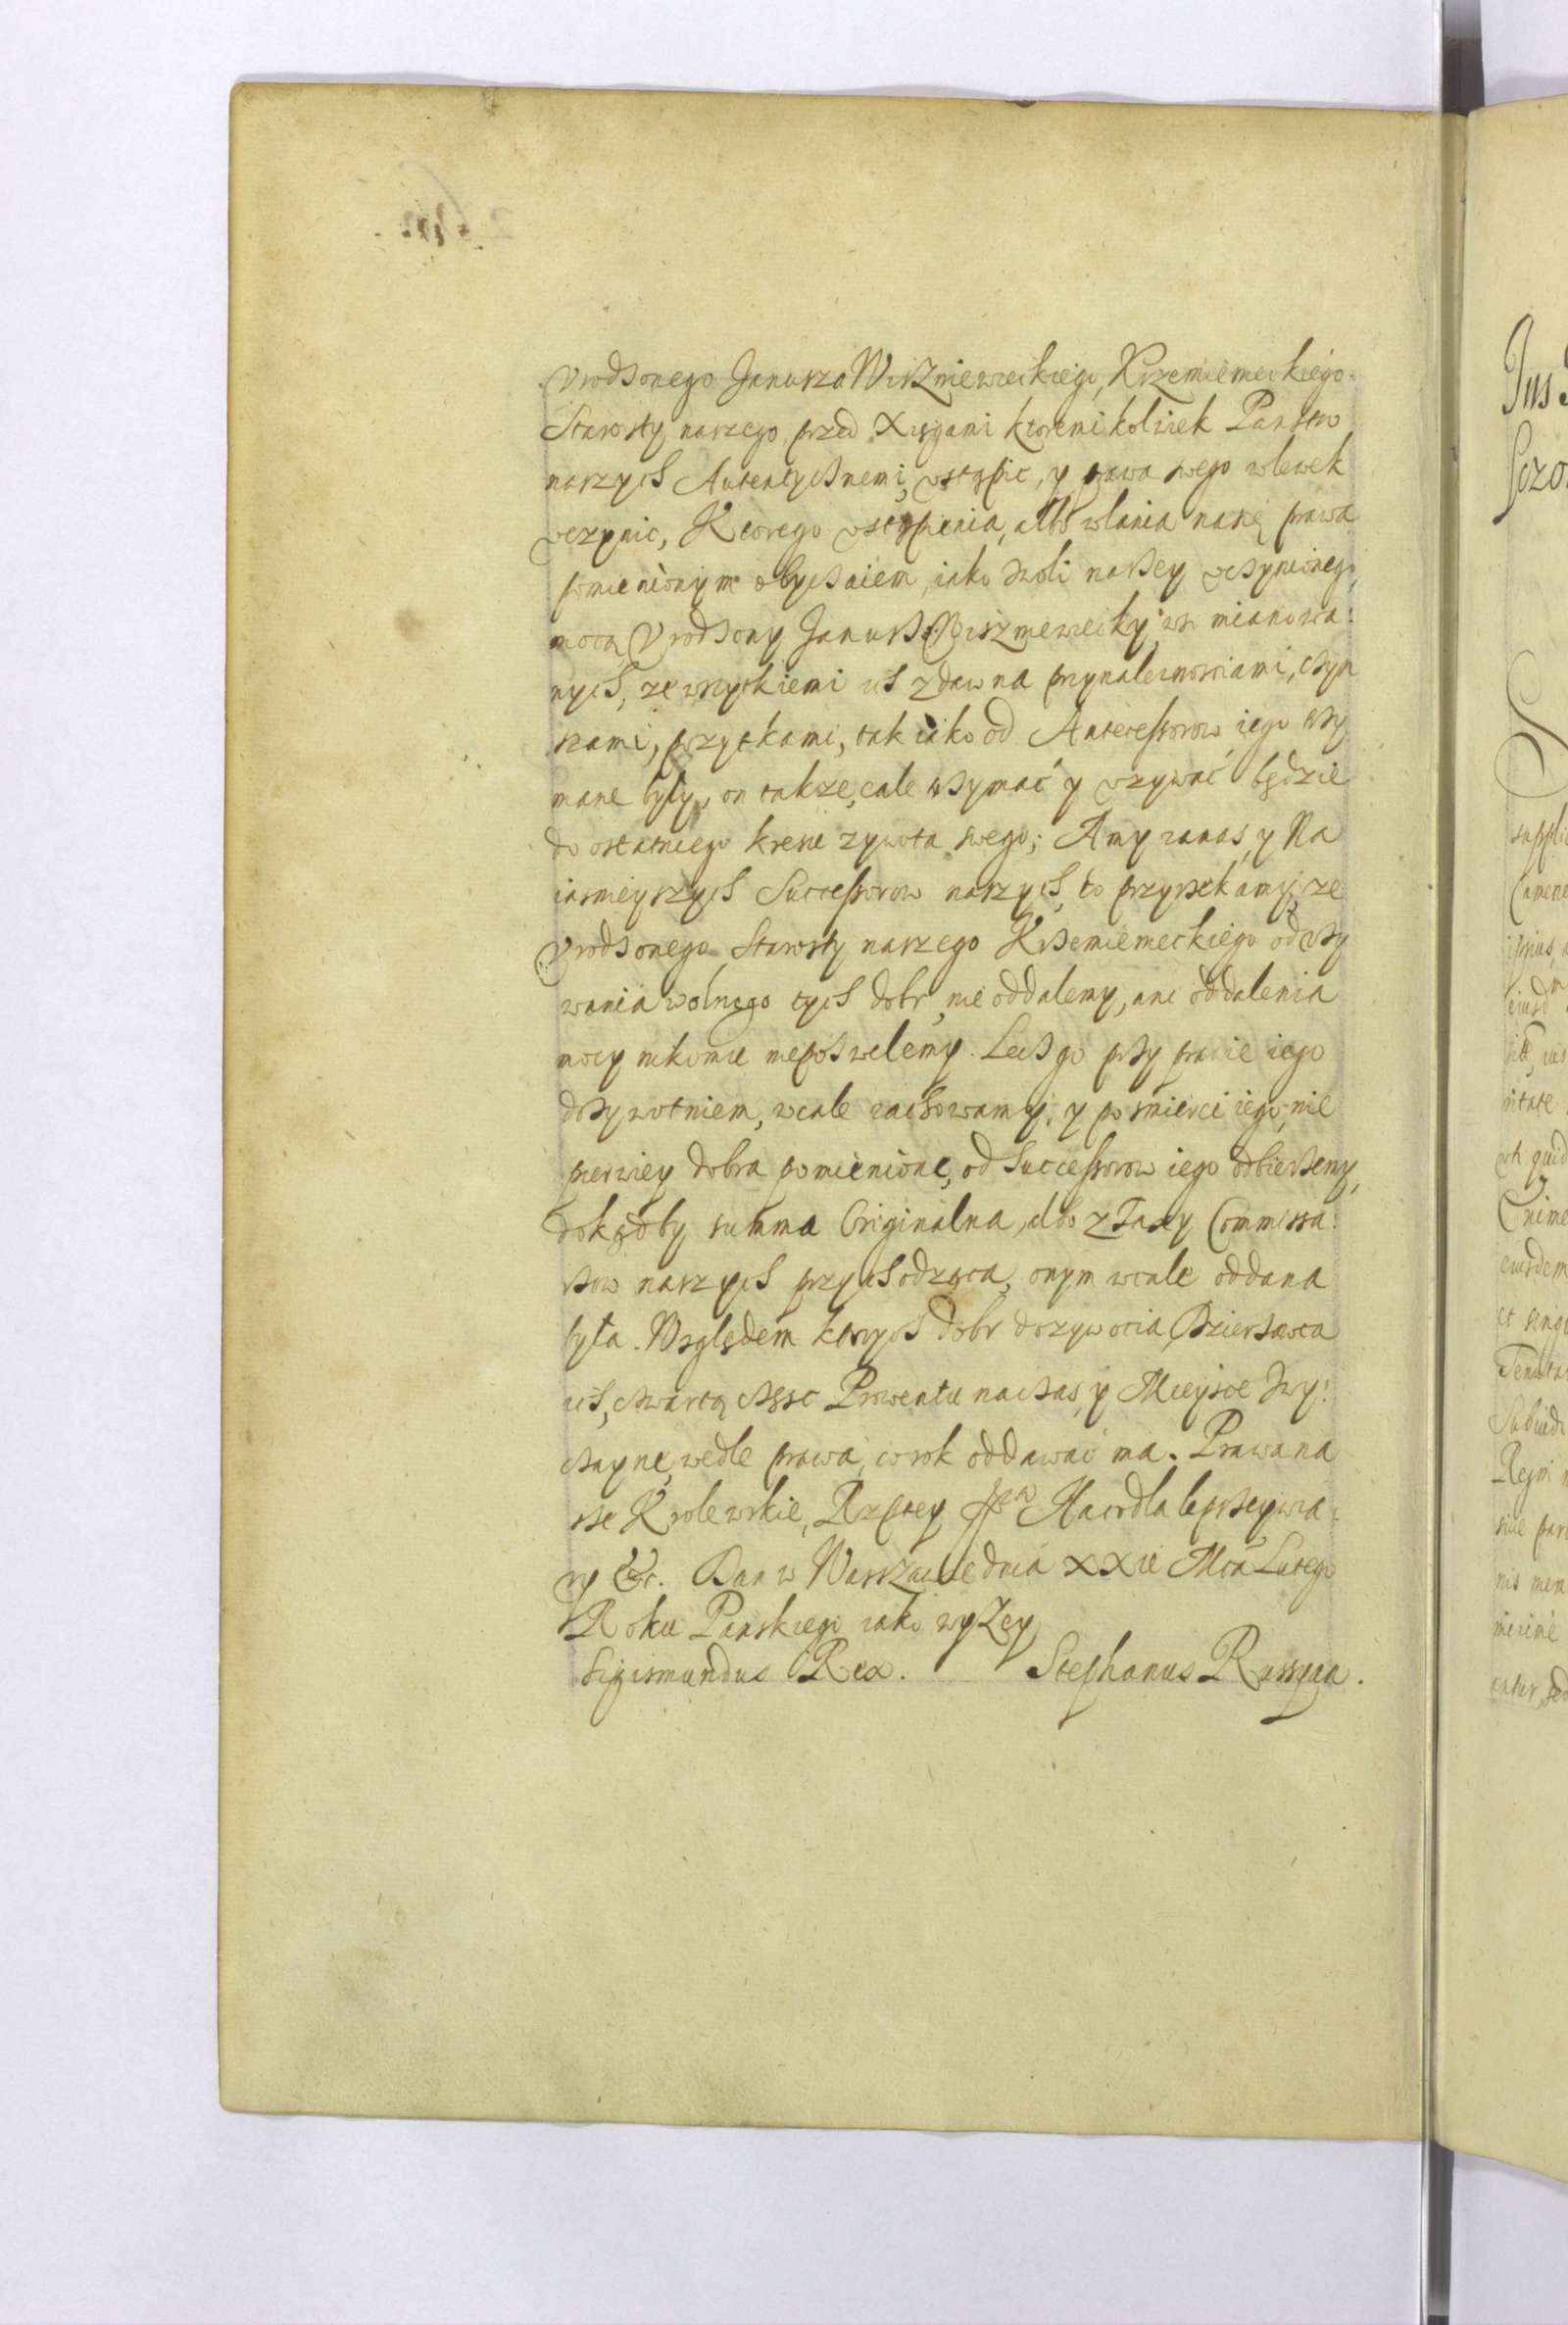 Vrodzonego Janusza Wiszniewieckiego, Krzemienieckiego
Starosty naszego przed Xięgami ktoremi kolwiek Panstw
naszych Autentycznemi, vstąpic, y prawa swego wlewek
vczynic, Ktorego vstąpienia, albo wlania nanię prawa
pomienionym obyczaiem, iako zwoli naszey vczynionego,
mocą Vrodzony Janusz Wiszniewiecky, wsi mianowa:
nych, ze wszytkiemi ich zdawna przynaleznosciami, czyn
szami, pozytkami, tak iako od Antecessorow iego trzy
mane były, on takze, cale trzymać y vzywać będzie
do ostatniego kresu zywota swego; A my zanas, y Na
iasnieyszych Successorow naszych, to przyrzekamy, ze
Vrodzonego Starosty naszego Krzemienieckiego odvzy
wania wolnego tych dobr, nie oddalemy, ani oddalenia
mocy nikomu niepozwolemy. Lecz go przy prawie iego
dozywotniem, wcale zachowamy, y po smierci iego, nie
pierwiey dobra pomienione, od Successorow iego odbierzemy,
dokądby summa Originalna, albo z Taxy Commissa:
rzow naszych przychodząca, onym wcale oddana
była. Względem ktorych dobr dozywocia, Dzierzawca
ich, czwartą częsc Prowentu na czas, y Mieysce Zwy:
czayne, wedle prawa, co rok oddawać ma. Prawa na
sze Krolewskie, Rzptey Na co dla lepszey wia:
ry &c. Dan w Warszawie dnia XX ie Mca Lutego
Roku Panskiego iako wyzey
Sigismundus Rex. Stephanus Russyan.
Jus